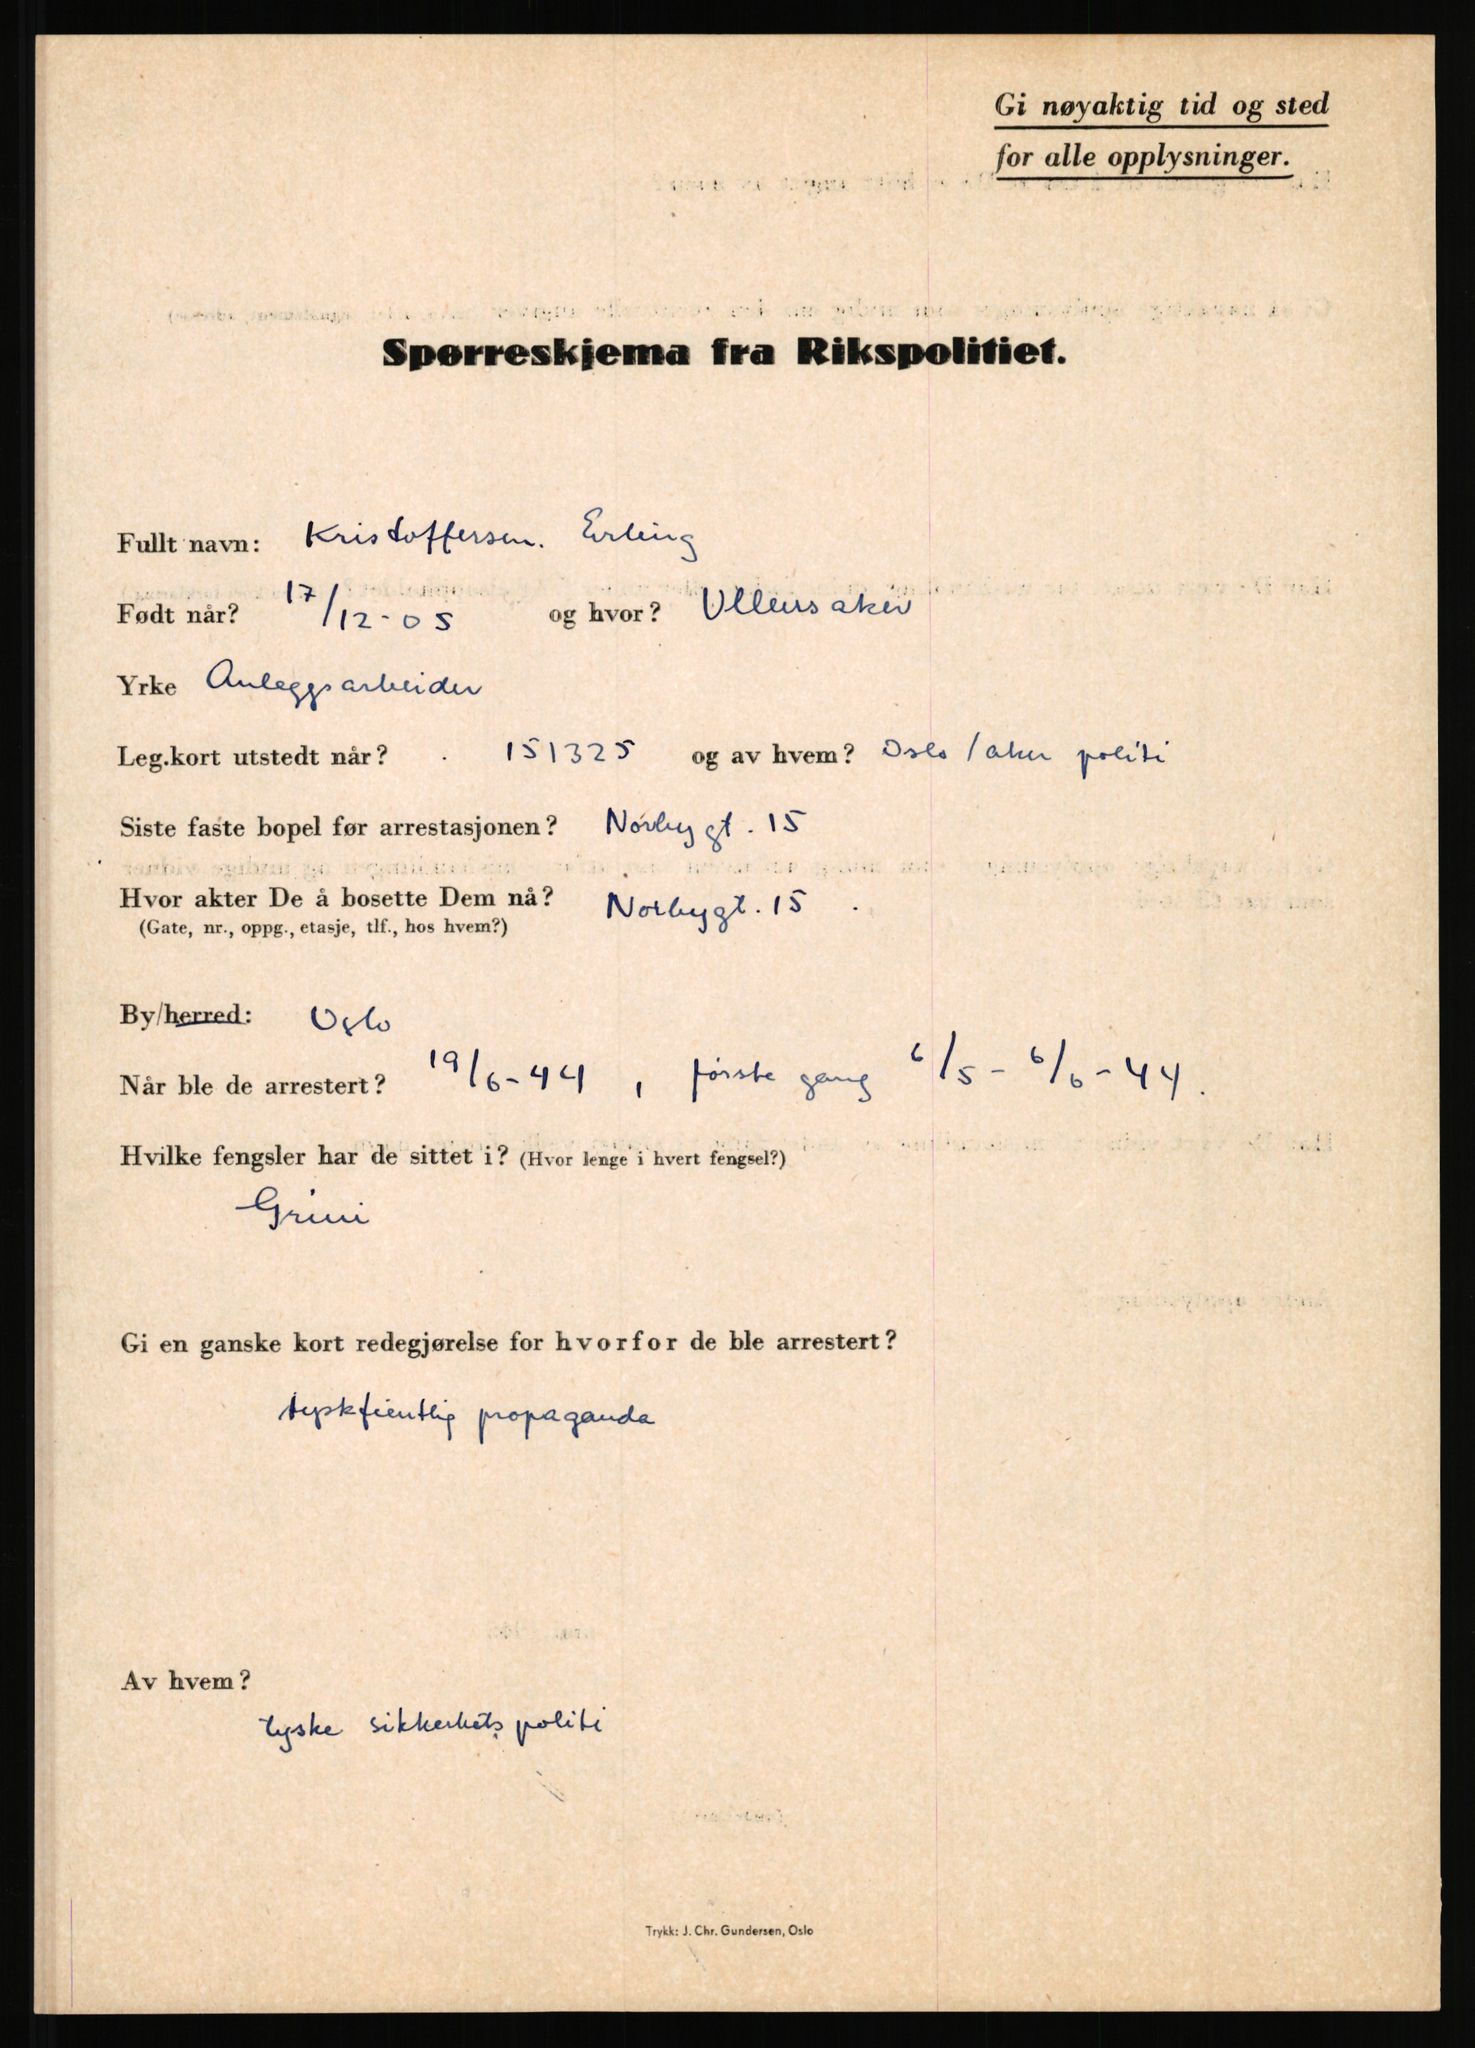 Gi nøyaktig tid og sted
for alle opplysninger.
Spørreskjema fra Rikspolitiet.
Fullt navn: Kristoffersen. Erling
Født når? 17/12-05 og hvor? Ullensaker
Yrke Anleggsarbeider
Leg.kort utstedt når? 151325 og av hvem? Oslo/aker politi
Siste faste bopel før arrestasjonen? Norbygt. 15
Hvor akter De å bosette Dem nå? Norbygt. 15.
(Gate, nr., oppg., etasje, tlf., hos hvem?)
By/herred: Oslo
Når ble de arrestert? 19/6-44, første gang 6/5 - 6/6-44.
Hvilke fengsler har de sittet i? (Hvor lenge i hvert fengsel?)
Grini
Gi en ganske kort redegjørelse for hvorfor de ble arrestert?
tyskfientlig propaganda
Av hvem?
tyske sikkerhets politi
Trykk: J. Chr. Gundersen, Oslo